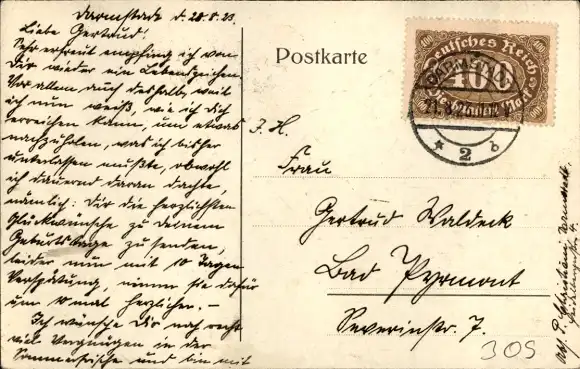 Darmstadt d. 20.8.23.
Liebe Gertrud!
Sehr erfreut empfing ich von
Dir wieder ein Lebenszeichen.
Vor allem auch deshalb, weil
ich nun weiß, wie ich Dich
erreichen kann, um etwas
nachzuholen, was ich bisher
unterlassen mußte, obwohl
ich dauernd daran dachte,
nämlich: Dir die herzlichsten
Glückwünsche zu Deinem
Geburtstage zu senden,
leider nun mit 10 Tagen
Verspätung, nimm sie dafür
um 10 mal herzlicher. –
Ich wünsche Dir noch recht
viel Vergnügen in der
Sommerfrische und bin mit
Postkarte
Deutsches Reich
400
400
400
DARMSTADT
* 2
Z. H.
Frau
Gertrud Waldeck
Bad Pyrmont
Severinstr. 7.
305
Darmstadt